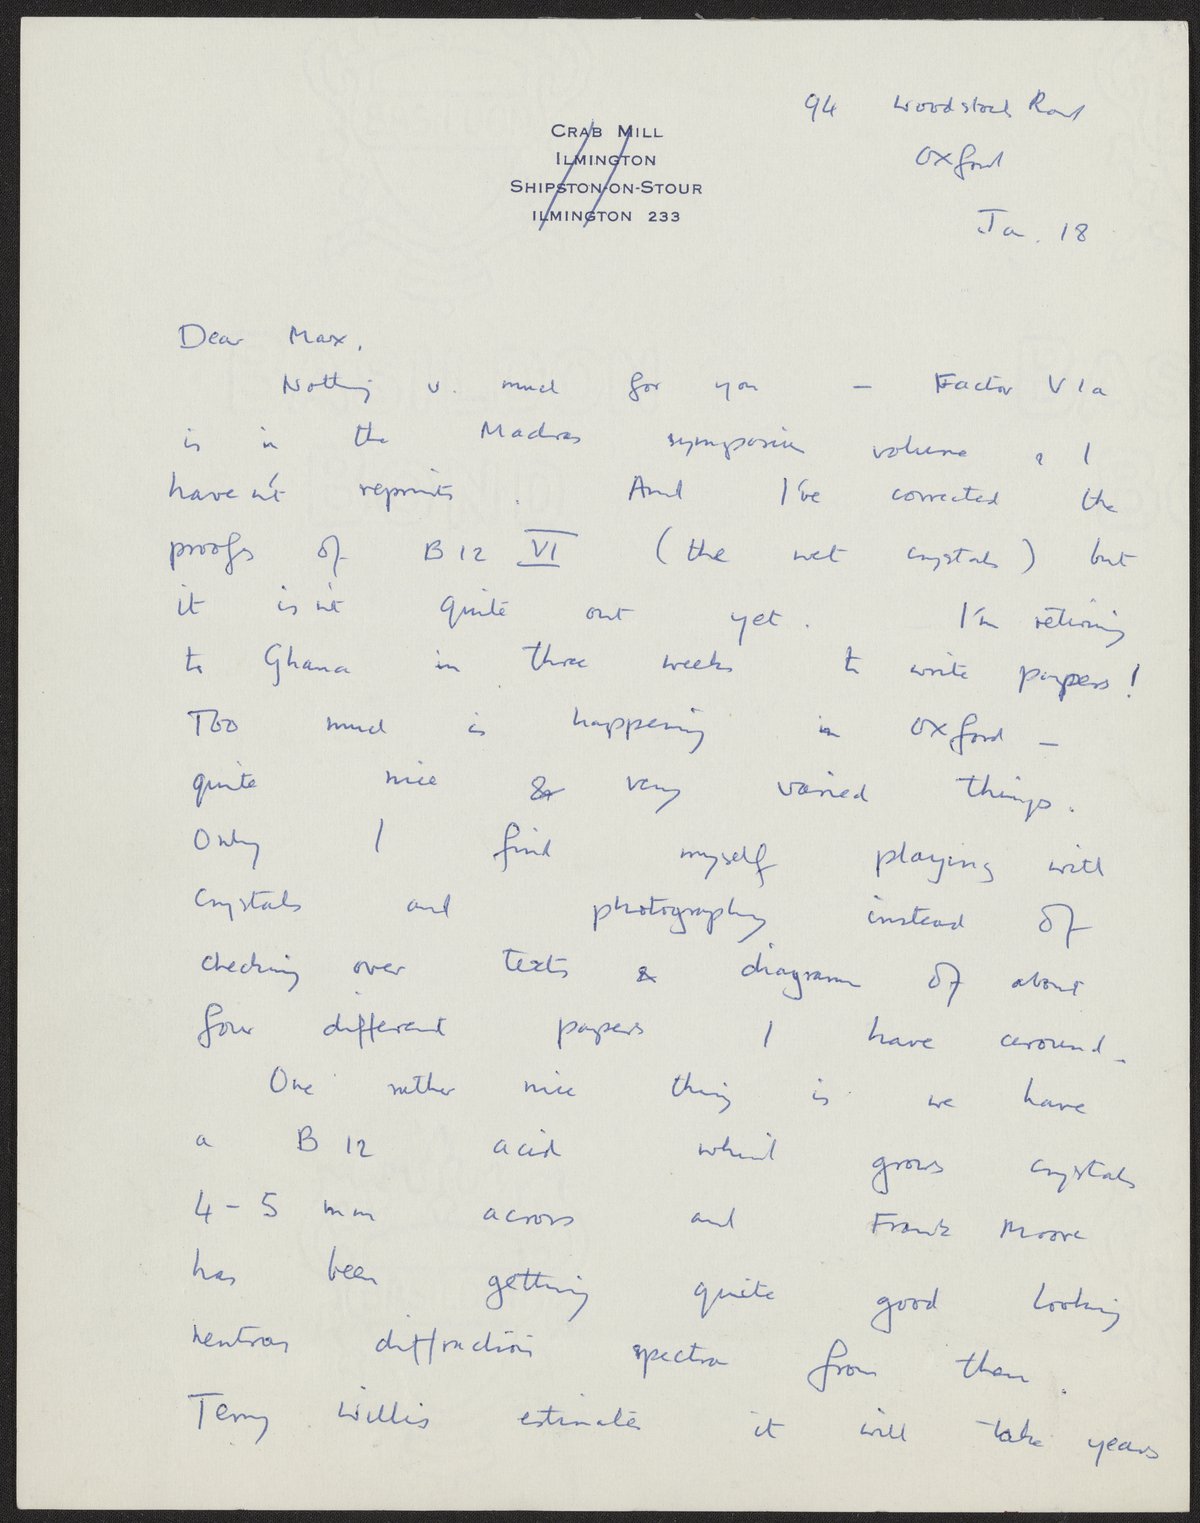 94 Woodstock Road
Oxford
Jan. 18
CRAB MILL
ILMINGTON
SHIPSTON-ON-STOUR
ILMINGTON 233
Dear Max,
Nothing v. much for you — Factor V1a
is in the Madras symposium volume & I
haven't reprints. And I've corrected the
proofs of B12 VI (the wet crystals) but
it isn't quite out yet. I'm retiring
to Ghana in three weeks to write papers!
Too much is happening in Oxford —
quite nice & very varied things.
Only I find myself playing with
crystals and photography instead of
checking over texts & diagrams of about
four different papers I have around.
One rather nice thing is we have
a B12 acid which grows crystals
4-5 mm across and Frank Moore
has been getting quite good looking
neutron diffraction spectra from them.
Terry Willis estimates it will take years